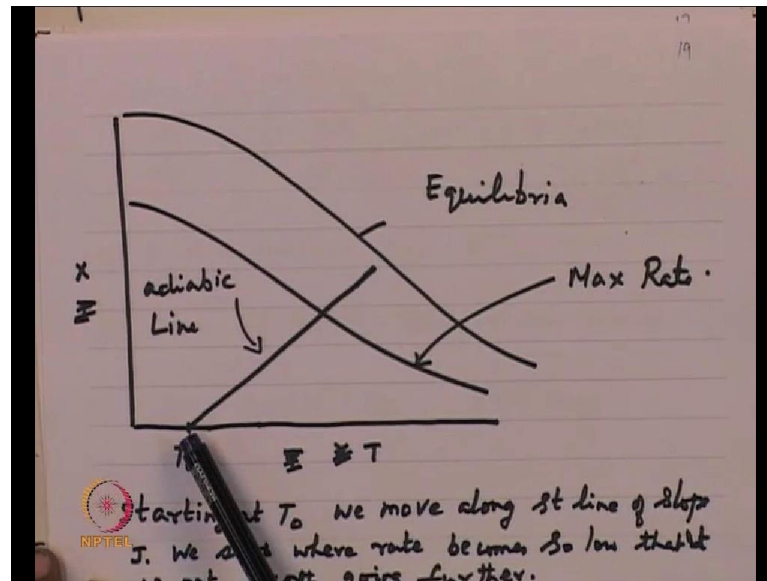 19
Equilibria
Max Rate.
X
adiabic
Line
T
Starting at T₀ we move along st line of slope
J. We where rate becomes so low that it
going further.
NPTEL